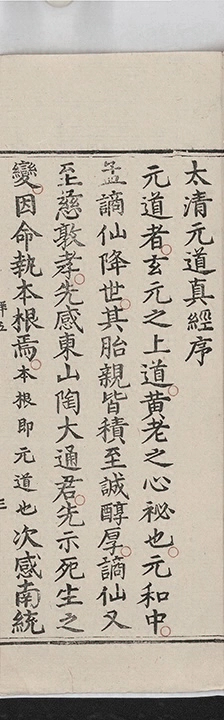 太清元道真經序
元道者玄元之上道黄老之心秘也元和中
孟謫仙降世其胎親皆積至誠醇厚謫仙又
至慈敦孝先感東山陶大通君先示死生之
變因命執本根焉本根即元道也次感南統